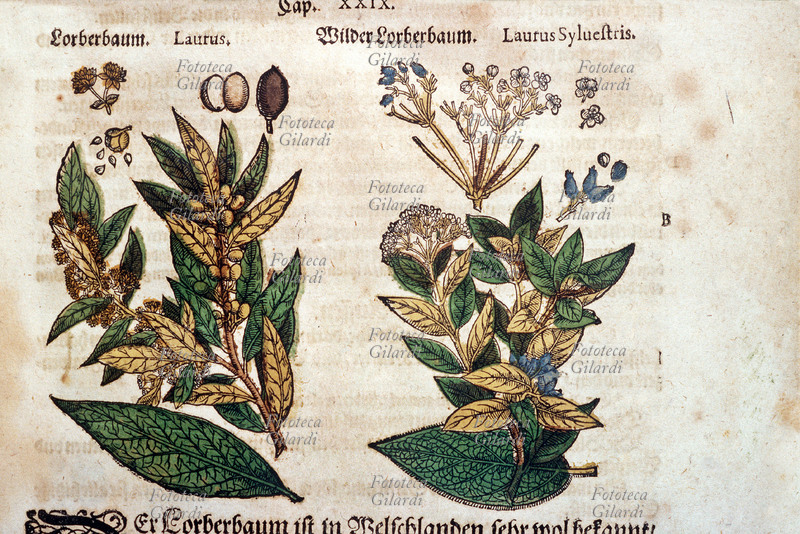 Cap. XXIX.
Lorberbaum. Laurus. Wilder Lorberbaum. Laurus Sylvestris.
B
DEr Lorberbaum ist in Welschlanden sehr wol bekannt/
Fototeca
Gilardi
Fototeca
Gilardi
Fototeca
Gilardi
Fototeca
Gilardi
Fototeca
Gilardi
Fototeca
Gilardi
Fototeca
Gilardi
Fototeca
Gilardi
Fototeca
Gilardi
Fototeca
Gilardi
Fototeca
Gilardi
Fototeca
Gilardi
Fototeca
Gilardi
Fototeca
Gilardi
Fototeca
Gilardi
Fototeca
Gilardi
Fototeca
Gilardi